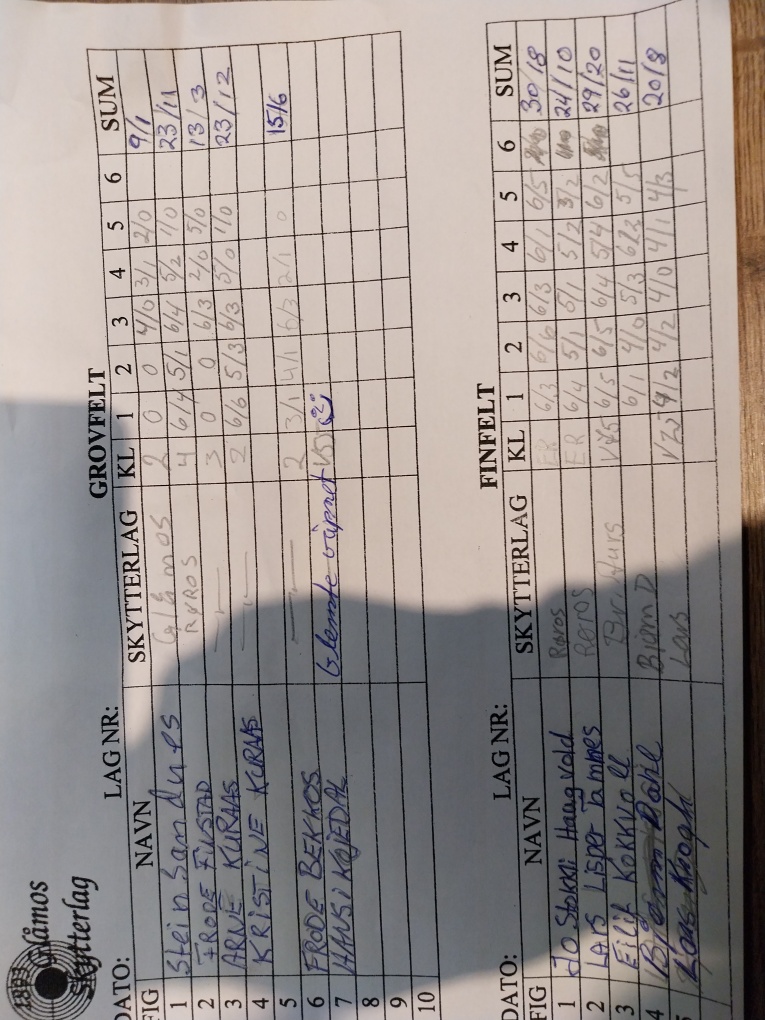 Glåmos
Skytterlag
GROVFELT
DATO: LAG NR:
FIG NAVN SKYTTERLAG KL 1 2 3 4 5 6 SUM
1 Stein Sandnes Glåmos 2 0 0 4/0 3/1 2/0 9/1
2 FRODE FIKSTAD RØROS 4 6/4 5/1 6/4 5/2 1/0 23/11
3 ARNE KURAAS —"— 3 0 0 6/3 2/0 5/0 13/3
4 KRISTINE KURAAS —"— 2 6/6 5/3 6/3 5/0 1/0 23/12
5
6 FRODE BEKKOS —"— 2 3/1 4/1 6/3 2/1 0 15/6
7 HANS J KOJEDAL Glemte våpnet V55
8
9
10
FINFELT
DATO: LAG NR:
FIG NAVN SKYTTERLAG KL 1 2 3 4 5 6 SUM
1 Jo Stokkli Haugvold Røros ER 6/3 6/6 6/3 6/1 6/5 30/18
2 Lars Lisper Tamnes Røros ER 6/4 5/1 5/1 5/2 3/2 24/10
3 Eilif Kokkvoll V75 6/5 6/5 6/4 5/4 6/2 29/20
4 Bjørn Dahle Bjørn D 6/1 4/0 5/3 6/2 5/5 26/11
5 Lars Krogh Lars 4/2 4/2 4/0 4/1 4/3 20/8